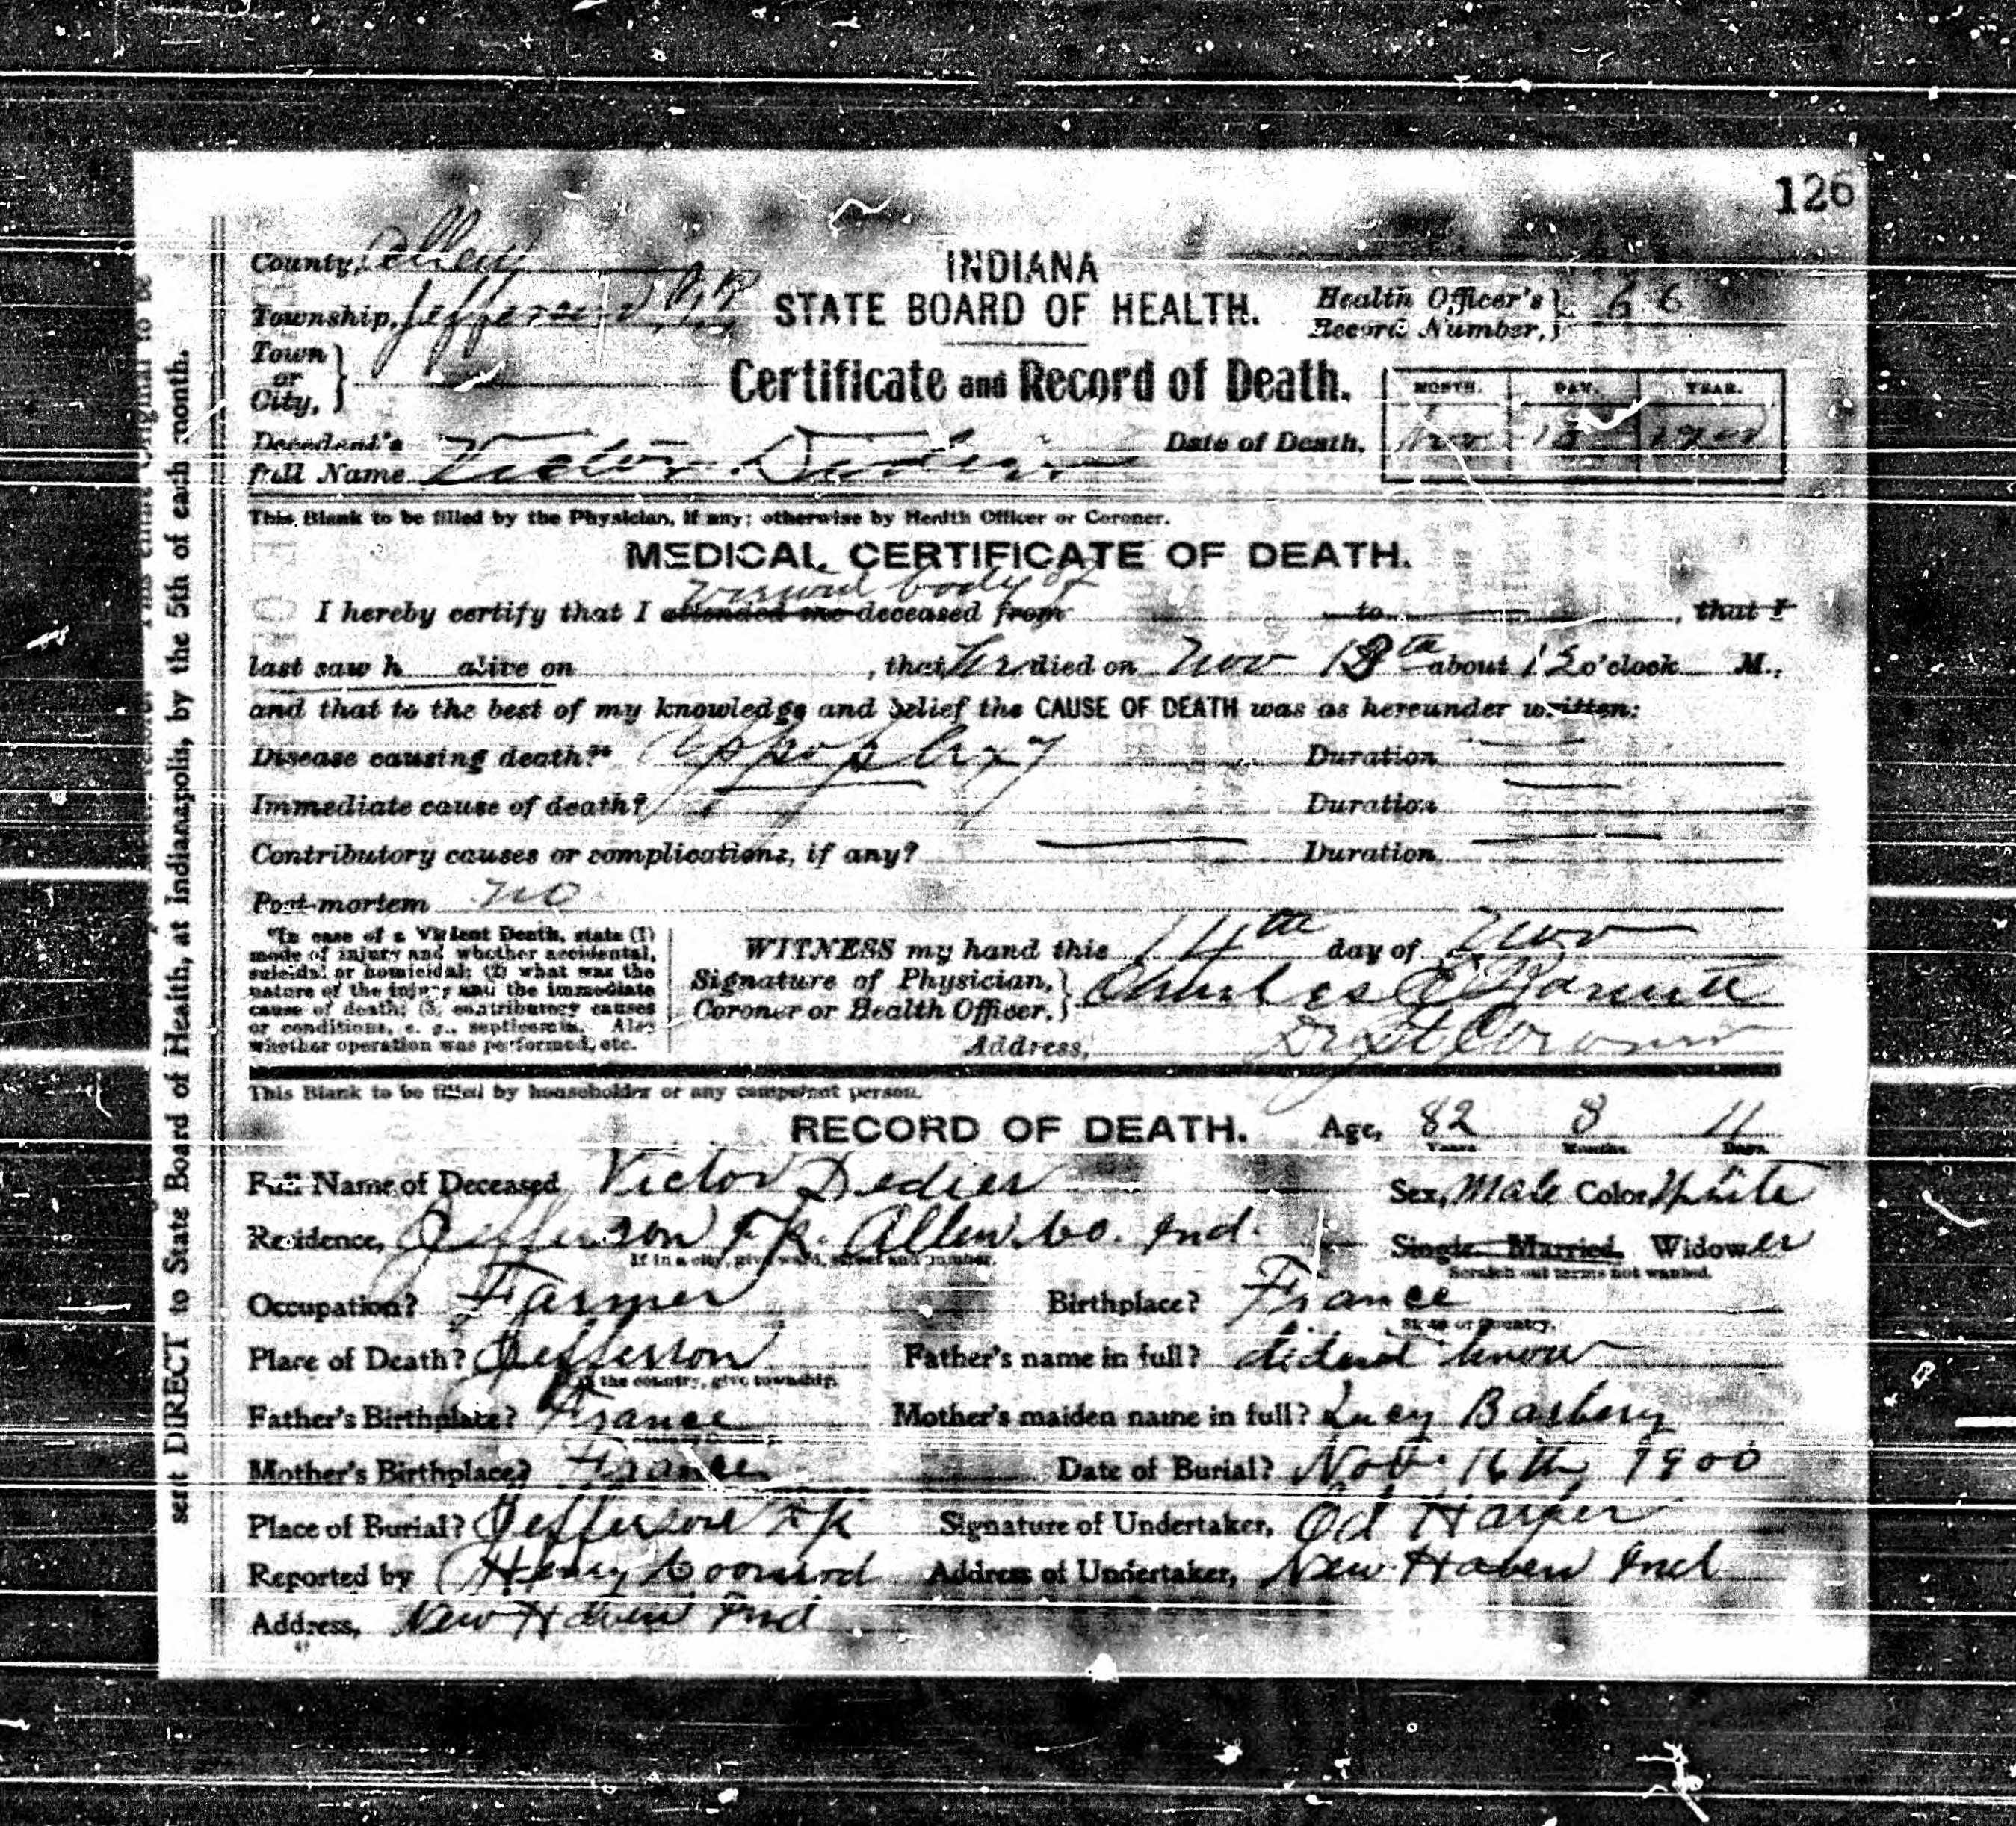 126
County, Allen
Township, Jefferson
INDIANA
STATE BOARD OF HEALTH.
Health Officer's Record Number, 66
Town or City,
Certificate and Record of Death.
MONTH. DAY. YEAR.
Decedent's full Name Victor Dedier
Date of Death, Nov 13 1900
This Blank to be filled by the Physician, if any; otherwise by Health Officer or Coroner.
MEDICAL CERTIFICATE OF DEATH.
viewed body of
I hereby certify that I attended the deceased from to , that I
last saw h alive on , that he died on Nov 13th about 12 o'clock M.,
and that to the best of my knowledge and belief the CAUSE OF DEATH was as hereunder written:
Disease causing death?* Appoplexy Duration
Immediate cause of death? Duration
Contributory causes or complications, if any? Duration
Post-mortem no
*In case of a Violent Death, state (1)
mode of injury and whether accidental,
suicidal or homicidal; (2) what was the
nature of the injury and the immediate
cause of death; (3) contributory causes
or conditions, e. g., septicemia. Also
whether operation was performed, etc.
WITNESS my hand this 14th day of Nov
Signature of Physician, Coroner or Health Officer, Charles E
Address, Coroner
This Blank to be filled by householder or any competent person.
RECORD OF DEATH. Age, 82 8 11
Years Months Days.
Full Name of Deceased Victor Dedier Sex, Male Color, White
Residence, Jefferson Tp. Allen Co. Ind. Single. Married. Widower
If in a city, give ward, street and number. Scratch out terms not wanted.
Occupation? Farmer Birthplace? France
State or Country.
Place of Death? Jefferson Father's name in full? dident know
If in the country, give township.
Father's Birthplace? France Mother's maiden name in full? Lucy Barbery
State or Country.
Mother's Birthplace? France Date of Burial? Nov 16th 1900
Place of Burial? Jefferson Tp Signature of Undertaker, Harper
Reported by Henry Address of Undertaker, New Haven Ind
Address, New Haven Ind
sent DIRECT to State Board of Health, at Indianapolis, by the 5th of each month.